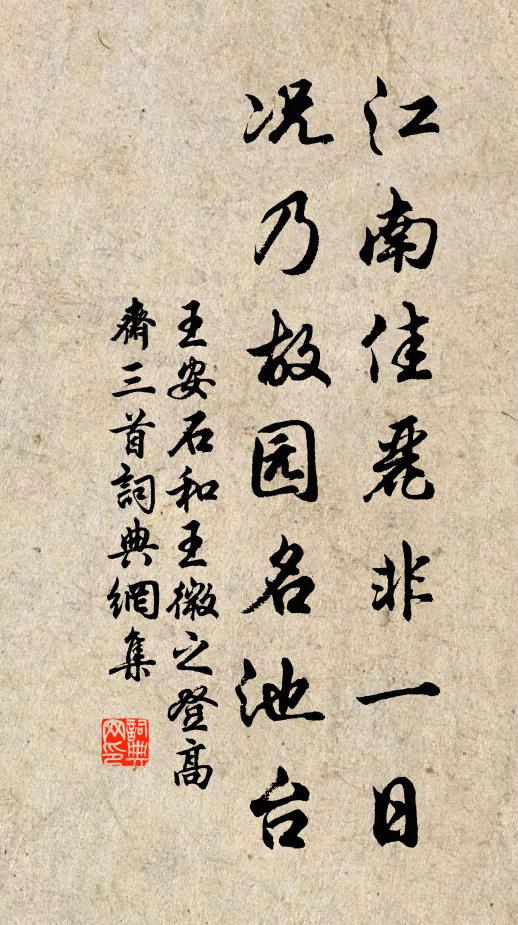 江南佳麗非一日
况乃故园名池台
王安石和王微之登高
齋三首詞典網集
詞典网印